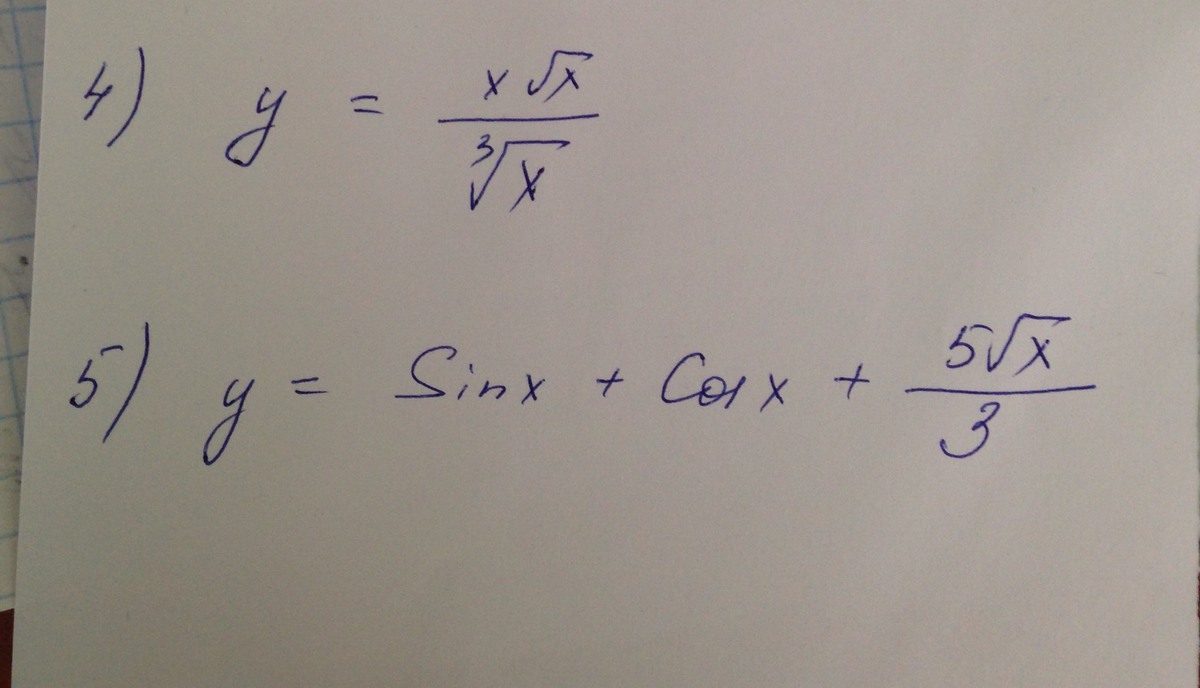 4) y = x √x / ∛x
5) y = Sinx + Cosx + 5√x / 3